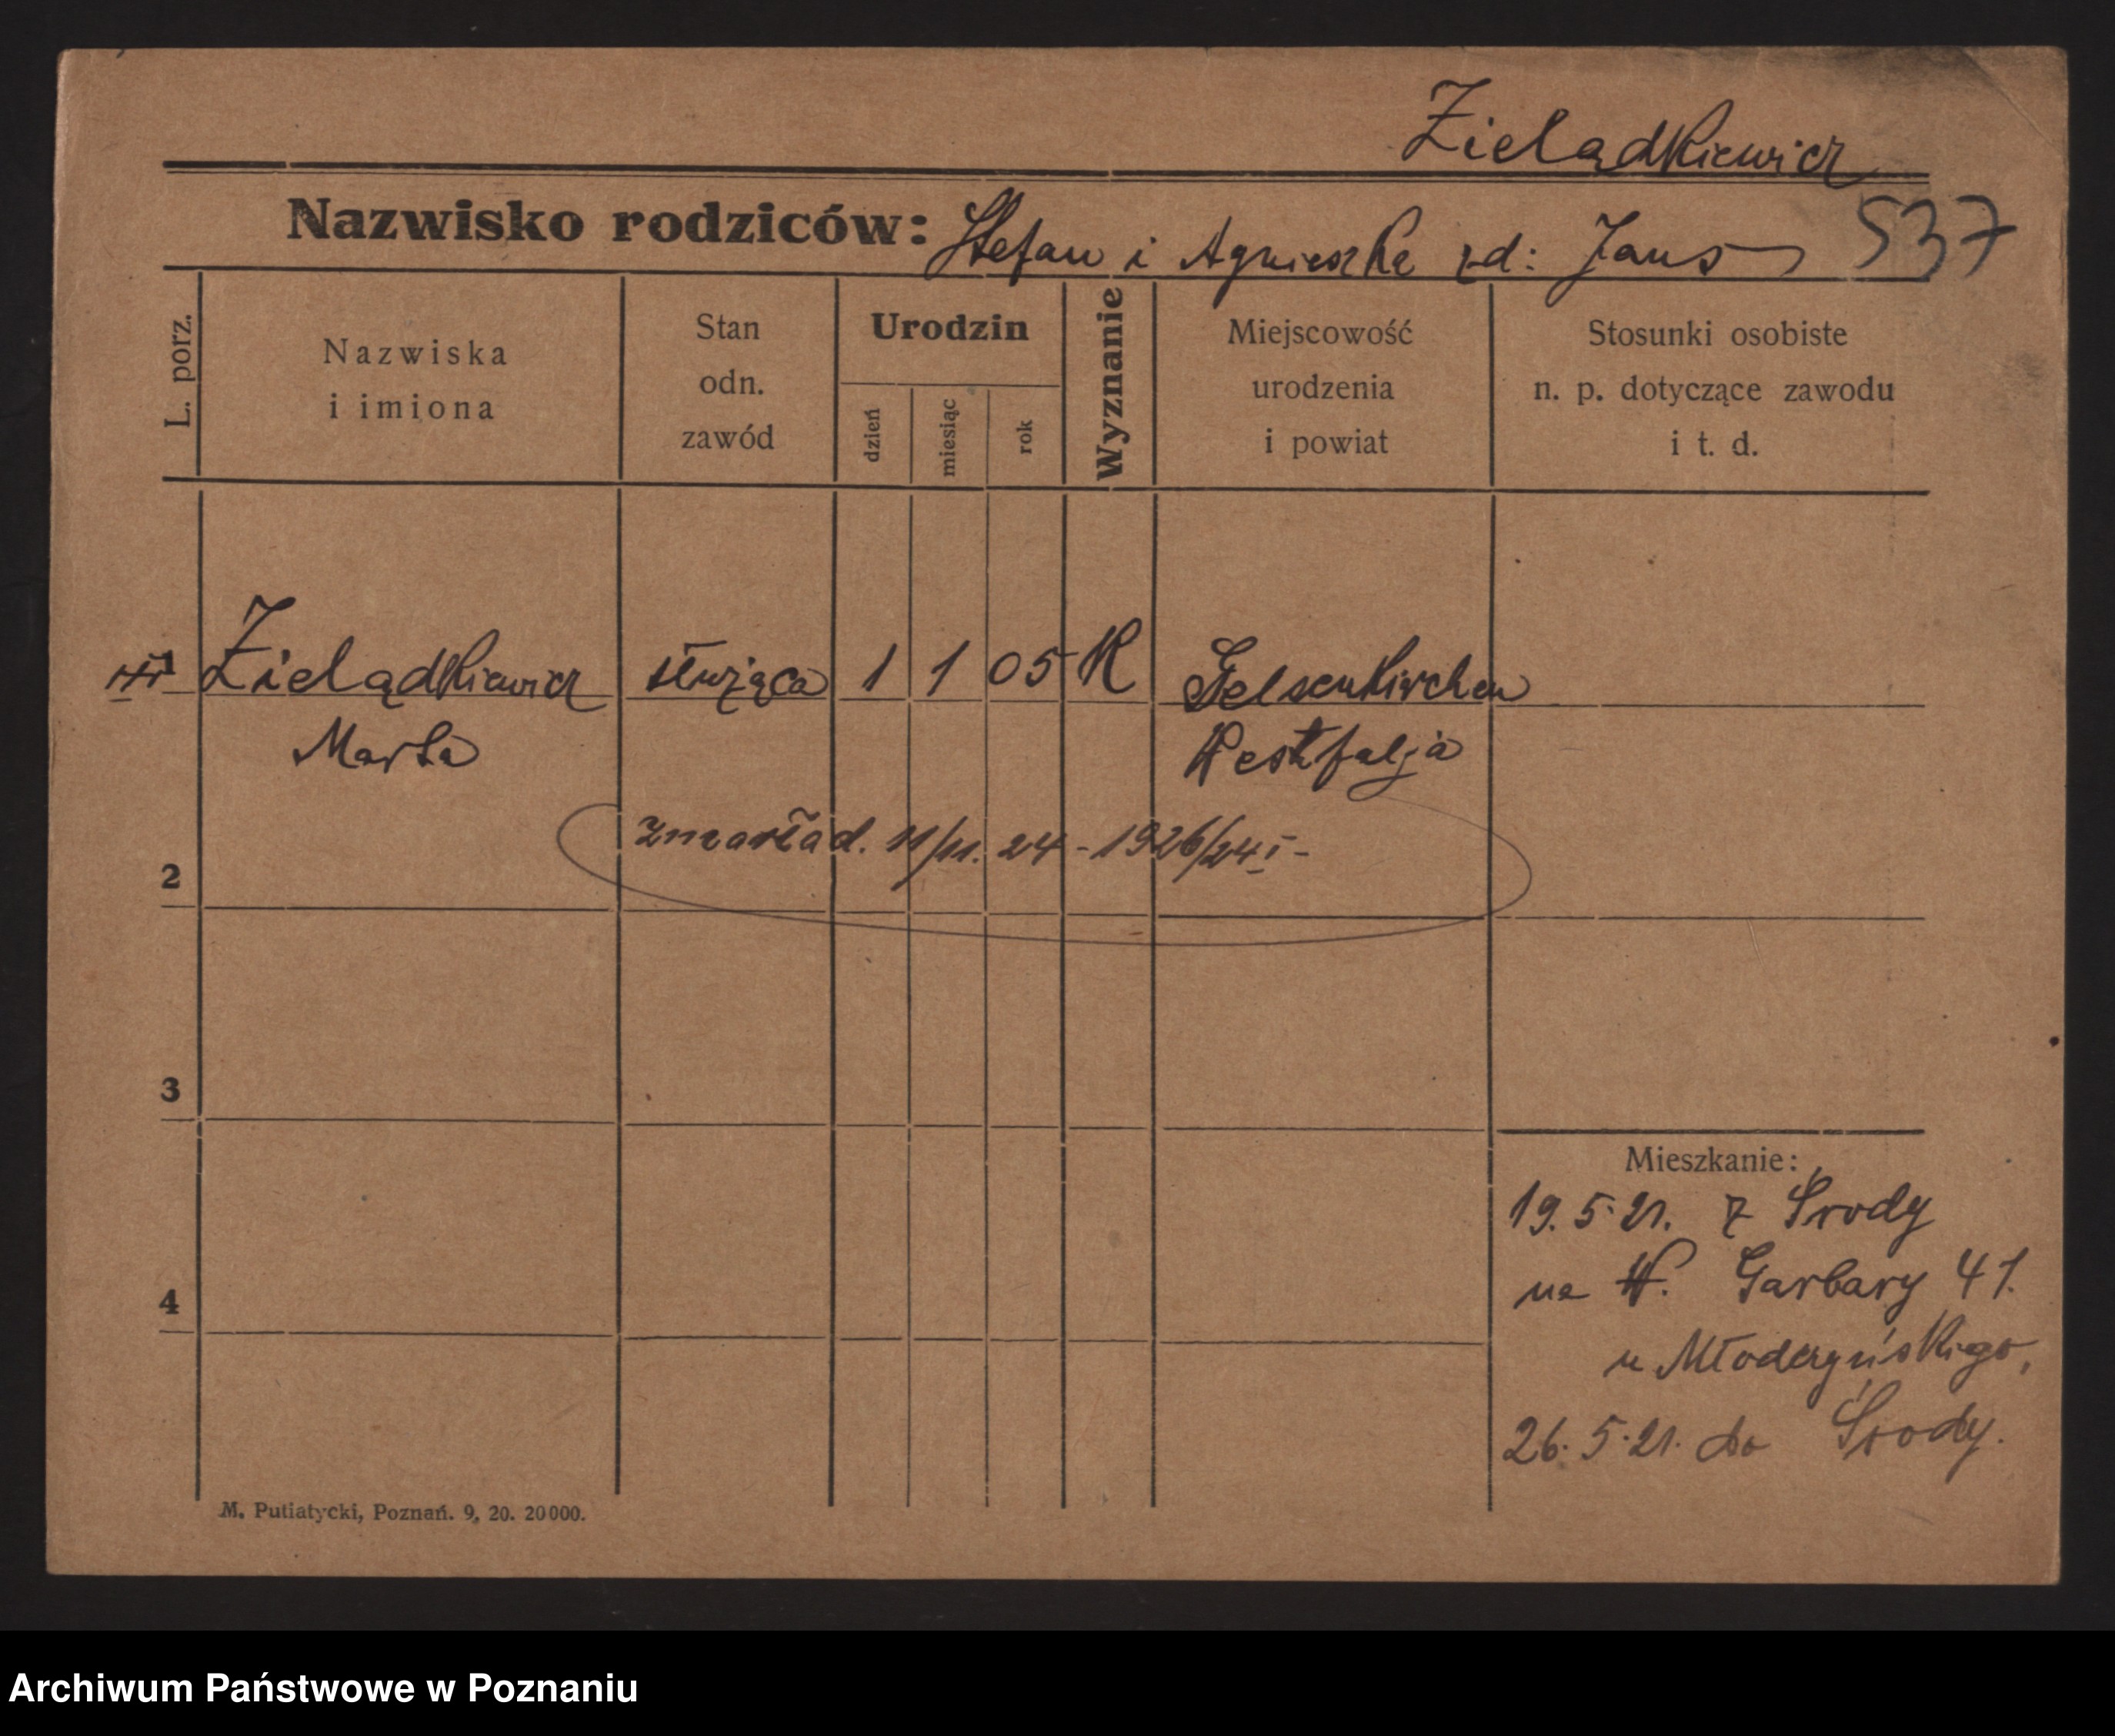 Zielądkiewicz
Nazwisko rodziców: Stefan i Agnieszka zd: Jans 537
L. porz.
Nazwiska
i imiona
Stan
odn.
zawód
Urodzin
dzień
miesiąc
rok
Wyznanie
Miejscowość
urodzenia
i powiat
Stosunki osobiste
n. p. dotyczące zawodu
i t. d.
1 Zielądkiewicz służąca 1 1 05 K Gelsenkirchen
Marta Westfalja
zmarła d. 11/11. 24 - 1926/24 I -
2
3
4
Mieszkanie:
19. 5. 21. z Środy
na W. Garbary 41.
u Młoderzyńskiego,
26. 5. 21. do Środy.
M. Putiatycki, Poznań. 9, 20. 20000.
Archiwum Państwowe w Poznaniu